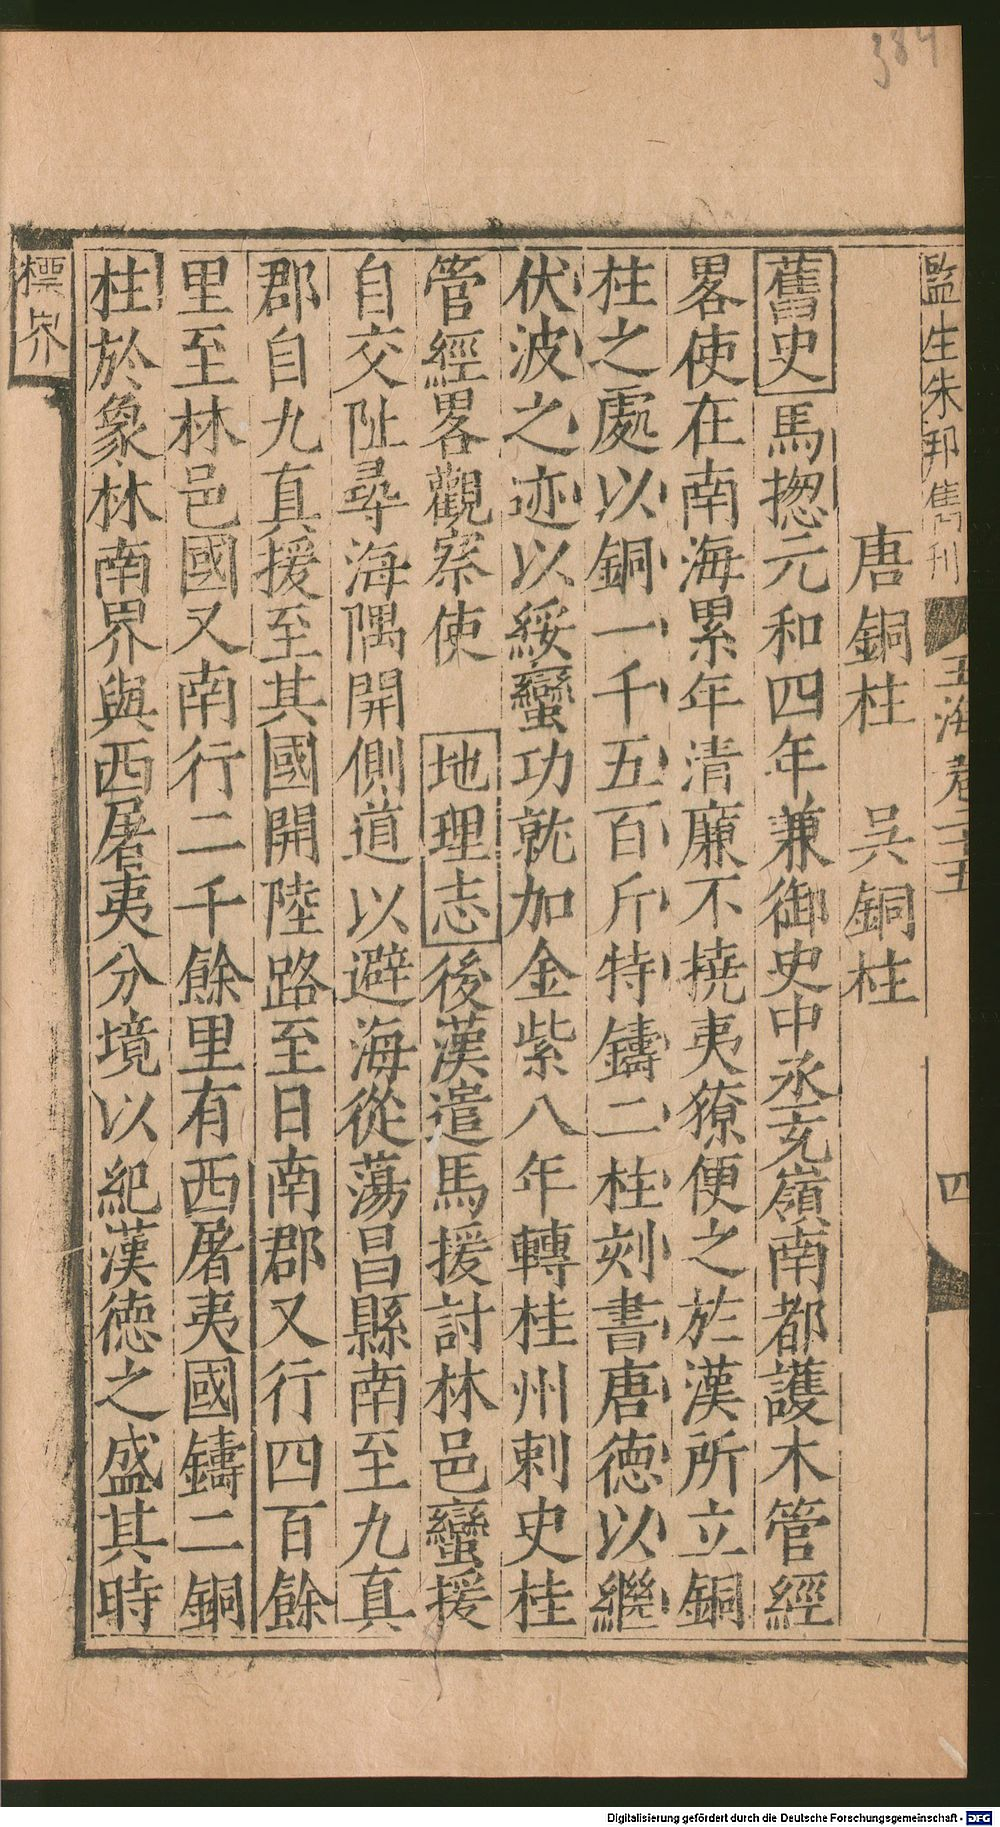 384
監生朱邦雋刊
玉海卷二十五
四
唐銅柱　吳銅柱
舊史馬揔元和四年兼御史中丞充嶺南都護本管經
畧使在南海累年清廉不撓夷獠便之於漢所立銅
柱之處以銅一千五百斤特鑄二柱刻書唐德以繼
伏波之迹以綏蠻功就加金紫八年轉桂州刺史桂
管經畧觀察使　地理志後漢遣馬援討林邑蠻援
自交阯尋海隅開側道以避海從蕩昌縣南至九真
郡自九真援至其國開陸路至日南郡又行四百餘
里至林邑國又南行二千餘里有西屠夷國鑄二銅
柱於象林南界與西屠夷分境以紀漢德之盛其時
標界
Digitalisierung gefördert durch die Deutsche Forschungsgemeinschaft - DFG